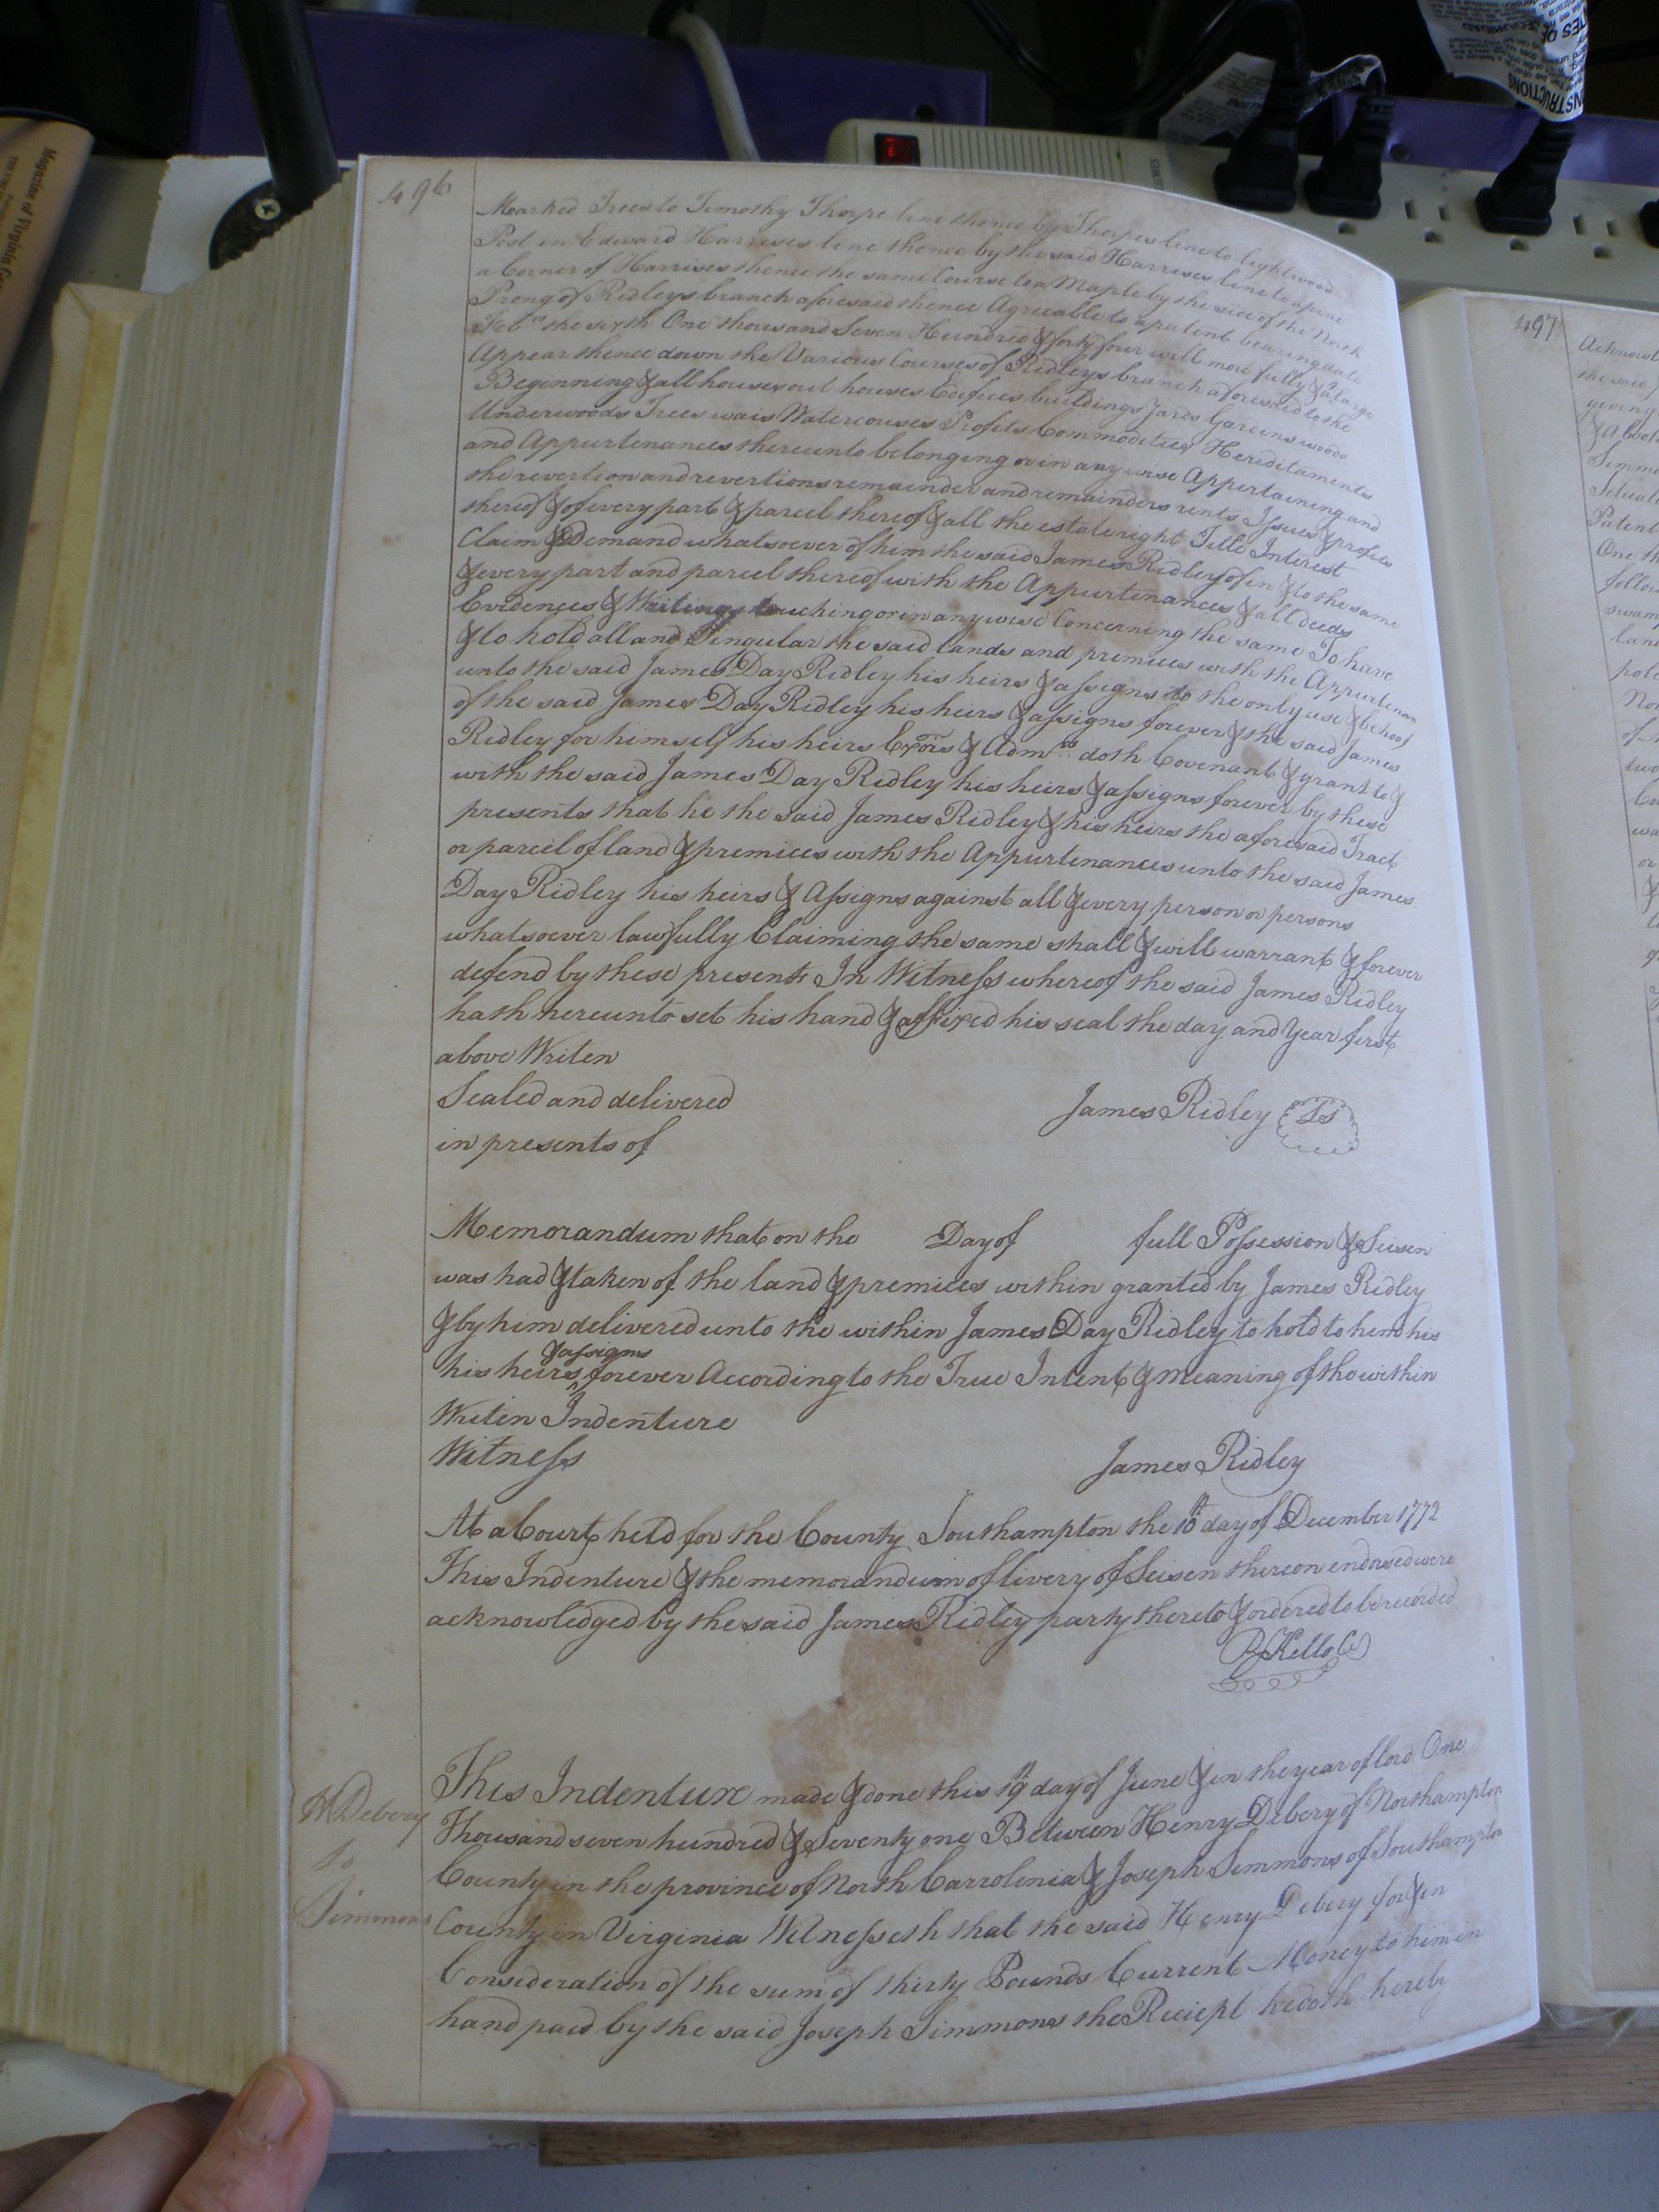 496
Marked Trees to Timothy Thorpe line thence by Thorpes line to lightwood
Post in Edward Harrises line thence by the said Harrises line to a pine
a Corner of Harrises thence the same Course to a Maple by the side of the North
Prong of Ridleys branch aforesaid thence Agreeable to a patent bearing date
Feb.ry the sixth One thousand Seven Hundred & forty four will more fully & a large
Appear thence down the Various Courses of Ridleys branch aforesaid to the
Beginning & all houses out houses Edifices buildings Yards Gardens woods
Underwoods Trees wais Watercouses Profits Commodities Hereditaments
and Appurtenances thereunto belonging or in any wise Appertaining and
the revertion and revertions remainder and remainders rents Issues & profits
thereof & of every part & parcel thereof & all the estate right Title Interest
Claim & Demand whatsoever of him the said James Ridley of in & to the same
& every part and parcel thereof with the Appurtenances & all deeds
Evidences & Writings touching or in any wise Concerning the same To have
& to hold all and Singular the said lands and premices with the Appurtenan
unto the said James Day Ridley his heirs & assigns to the only use & behoof
of the said James Day Ridley his heirs & assigns forever & the said James
Ridley for himself his heirs Exors & Adm.rs doth Covenant & grant to &
with the said James Day Ridley his heirs & assigns forever by these
presents that he the said James Ridley & his heirs the aforesaid Tract
or parcel of land & premices with the Appurtenances unto the said James
Day Ridley his heirs & Assigns against all & every person or persons
whatsoever lawfully Claiming the same shall & will warrant & forever
defend by these presents In Witness whereof the said James Ridley
hath hereunto set his hand & affixed his seal the day and Year first
above Writen
Sealed and delivered James Ridley Ls
in presents of
Memorandum that on the Day of full Possession & Seisen
was had & taken of the land & premices within granted by James Ridley
& by him delivered unto the within James Day Ridley to hold to him & his
& assigns
his heirs ^ forever According to the True Intent & Meaning of the within
Writen Indenture
Witness James Ridley
At a Court held for the County Southampton the 10th day of December 1772
This Indenture & the memorandum of livery of Seisen thereon endorsed were
acknowledged by the said James Ridley party thereto & ordered to be recorded
R Kello Cl
H Debery
to
Simmons
This Indenture made & done this 19th day of June & in the year of lord One
Thousand seven hundred & Seventy one Between Henry Debery of Northampton
County in the province of North Carrolinia & Joseph Simmons of Southampton
County in Virginia Witnesseth that the said Henry Debery for & in
Consideration of the sum of thirty Pounds Current Money to him in
hand paid by the said Joseph Simmons the Reciept he doth hereby
497
Acknowl
the said
giving
& Absol
Simmo
Situat
Patent
One th
follow
swam
land
pole
Nor
of
two
Co
wa
or
&
Magazine of Virginia Ge
INSTRUCTIONS